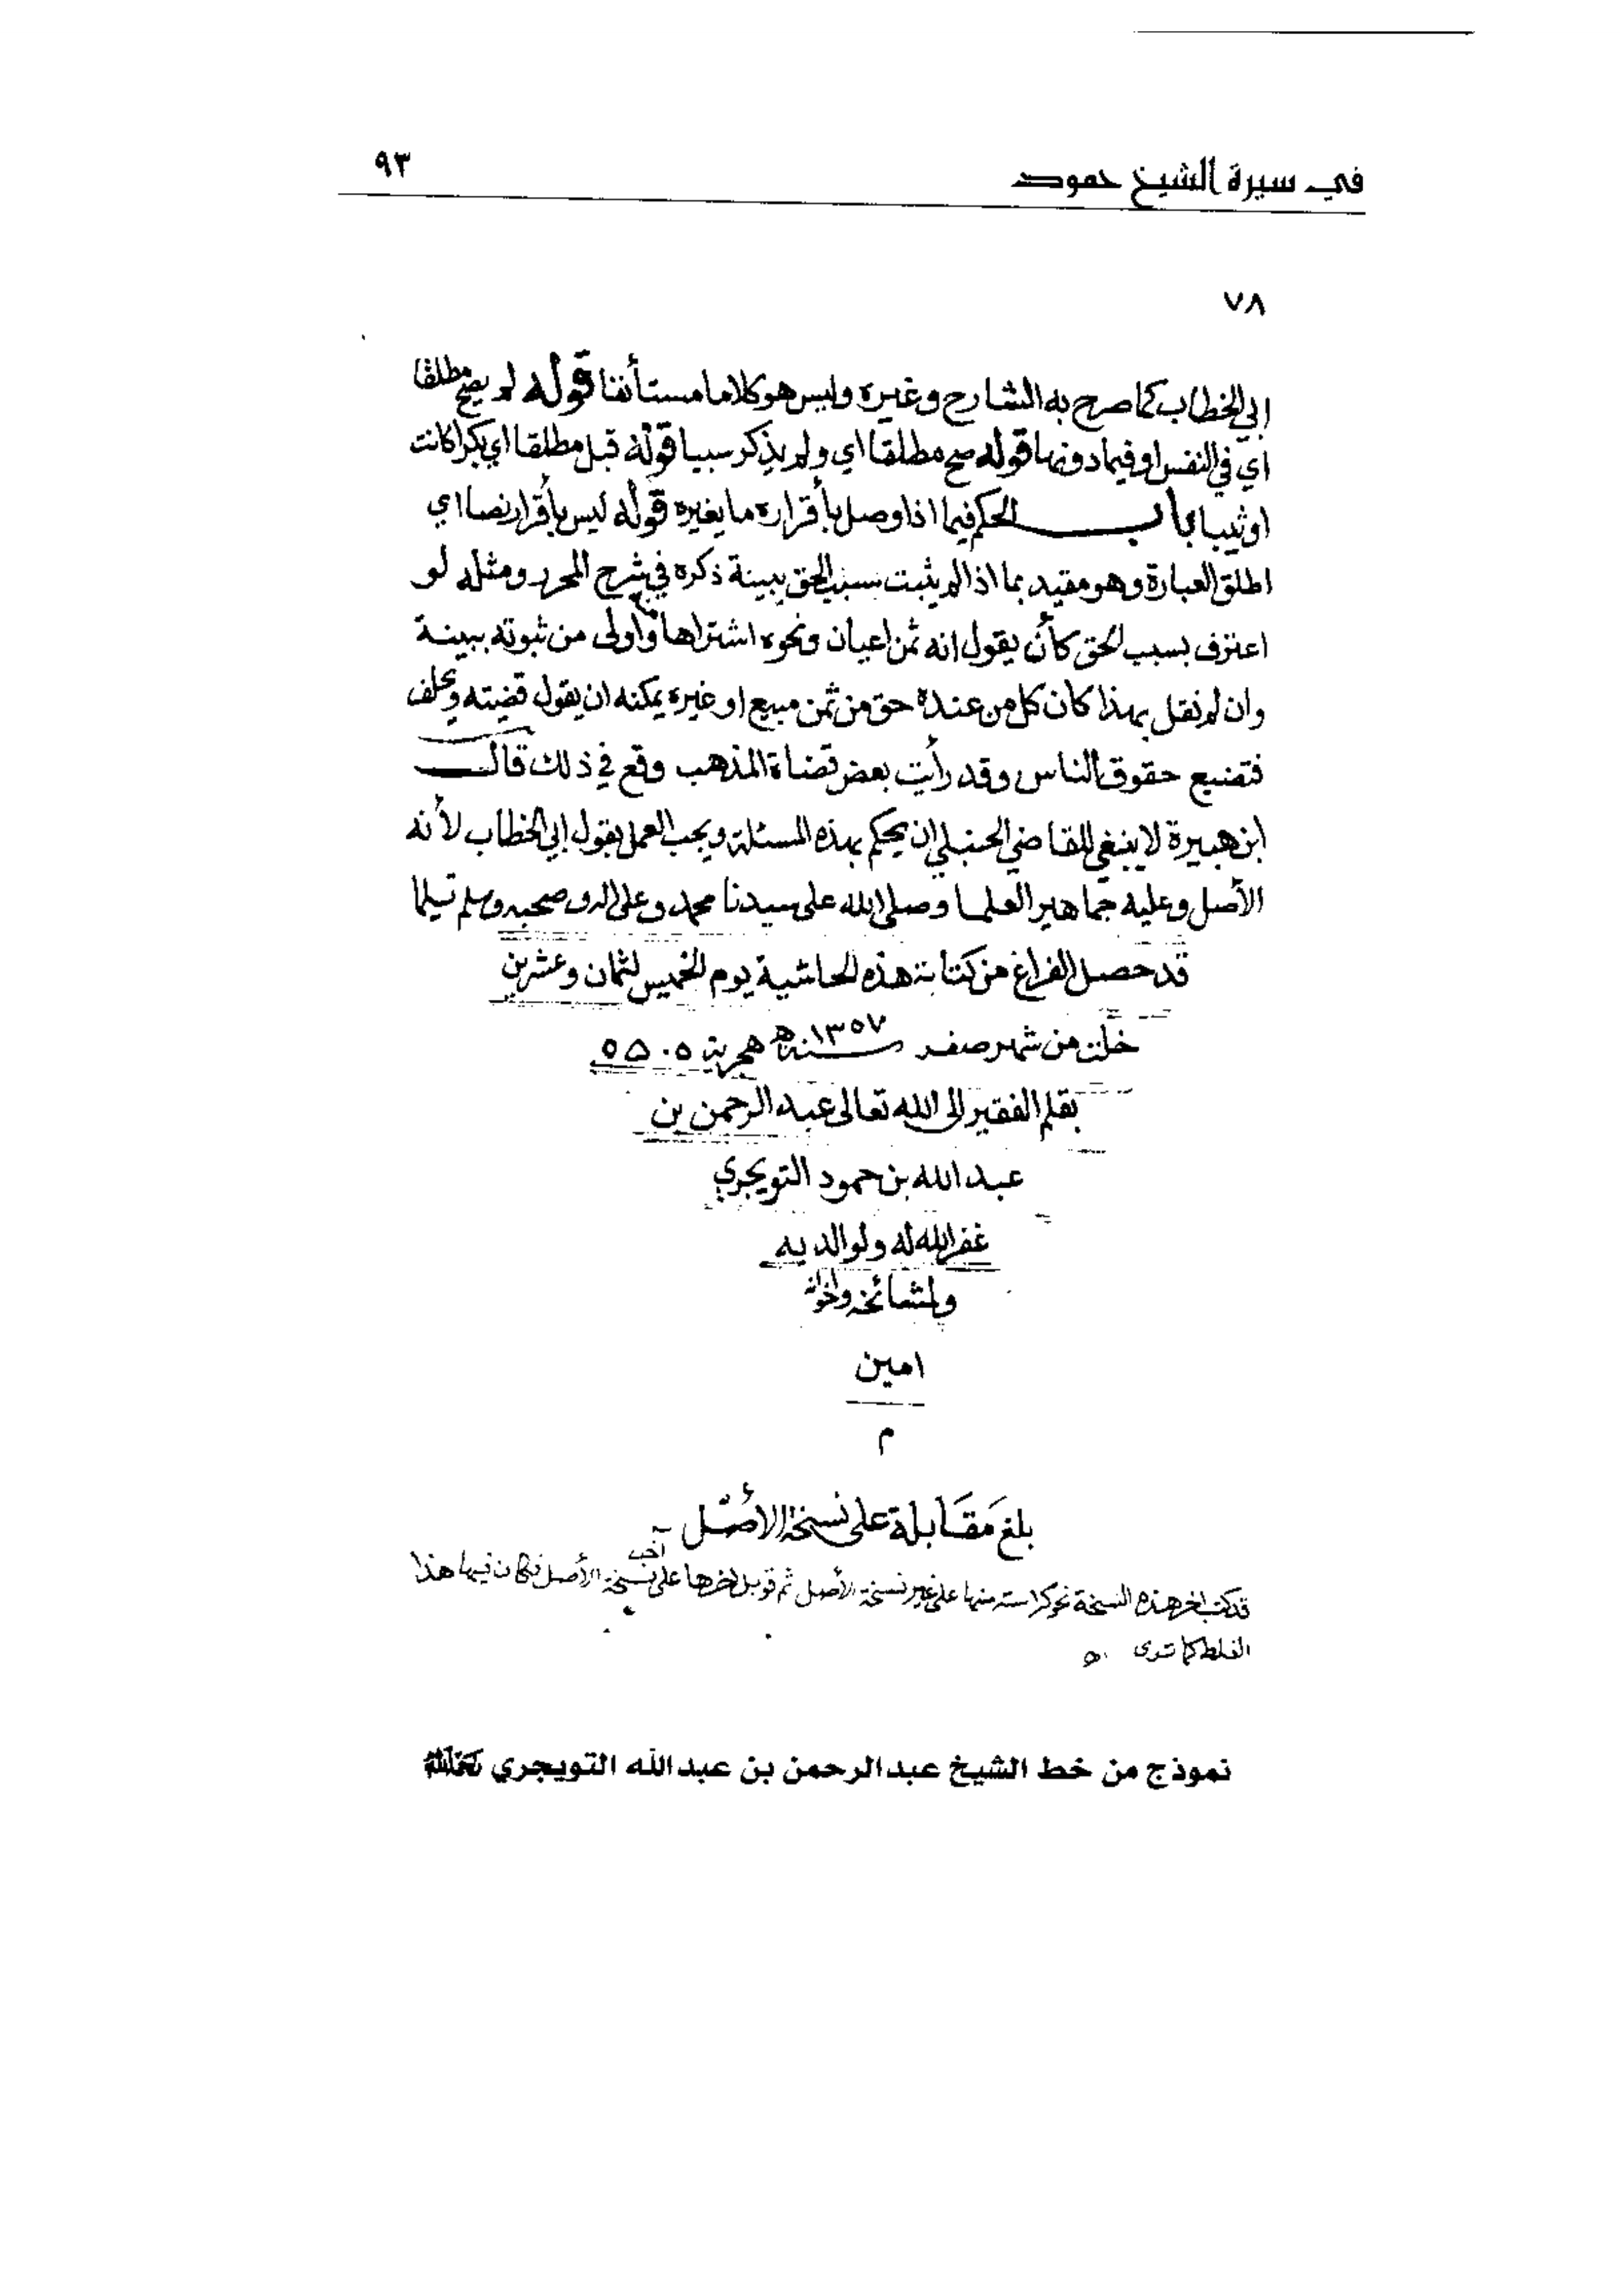 في سيرة الشيخ حمود
٩٣
٧٨
ابي الخطاب كما صرح به الشارح وغيره وليس هو كلاما مستأنفا قوله لم يصح مطلقا
اي في النفس او فيما دونها قوله صح مطلقا اي ولم يذكر سببا قوله قبل مطلقا اي بكرا كانت
او ثيبا باب الحكم فيما اذا وصل بأقراره ما يغيره قوله ليس بأقرار نصا اي
اطلق العبارة وهو مقيد بما اذا لم يثبت سبب الحق ببينة ذكره في شرح المحرر ومثله لو
اعترف بسبب الحق كأن يقول انه ثمن اعيان ونحوه اشتراها منه واولى من ثبوته ببينة
وان لم نقل بهذا كان كل من عنده حق من ثمن مبيع او غيره يمكنه ان يقول قضيته ويحلف
فتضيع حقوق الناس وقد رأيت بعض قضاة المذهب وقع في ذلك قال
ابن هبيرة لا ينبغي للقاضي الحنبلي ان يحكم بهذه المسئلة ويجب العمل بقول ابي الخطاب لأنه
الأصل وعليه جماهير العلما وصلى الله على سيدنا محمد وعلى اله وصحبه وسلم تسليما
قد حصل الفراغ من كتابة هذه الحاشية يوم الخميس لثمان وعشرين
خلت من شهر صفر سنة ١٣٥٧ هجرية
بقلم الفقير الى الله تعالى عبد الرحمن بن
عبد الله بن حمود التويجري
غفر الله له ولوالديه
ولمشائخه واخوانه
امين
م
بلغ مقابلة على نسخة الأصل
قد كتب اخر هذه النسخة نحو كراسته منها على غير نسخة الأصل ثم قوبل اخرها على نسخة الأصل فكان فيها هذا
الغلط كما ترى
نموذج من خط الشيخ عبدالرحمن بن عبدالله التويجري رحمه الله